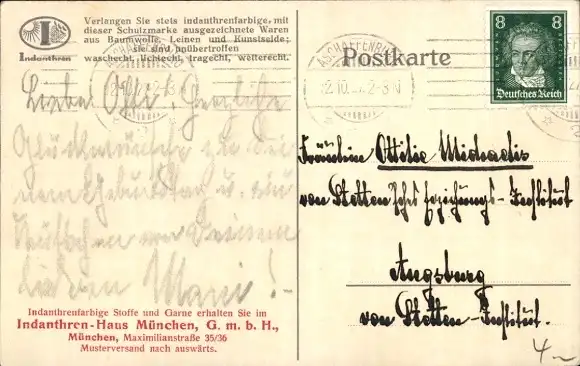 Verlangen Sie stets indanthrenfarbige, mit
dieser Schutzmarke ausgezeichnete Waren
aus Baumwolle, Leinen und Kunstseide;
sie sind unübertroffen
waschecht, lichtecht, tragecht, wetterecht.
Indanthren
Postkarte
8 8
Deutsches Reich
ASCHAFFENBURG
12.10. 2-3 N
Liebe Herzliche
Glückwünsche zu Dei-
nem Geburtstag u. ein
von Deiner
lieben Mani!
Fräulein Ottilie Michaelis
von Stetten'sches Erziehungs-Institut
Augsburg
von Stetten-Institut.
Indanthrenfarbige Stoffe und Garne erhalten Sie im
Indanthren-Haus München, G. m. b. H.,
München, Maximilianstraße 35/36
Musterversand nach auswärts.
4.-